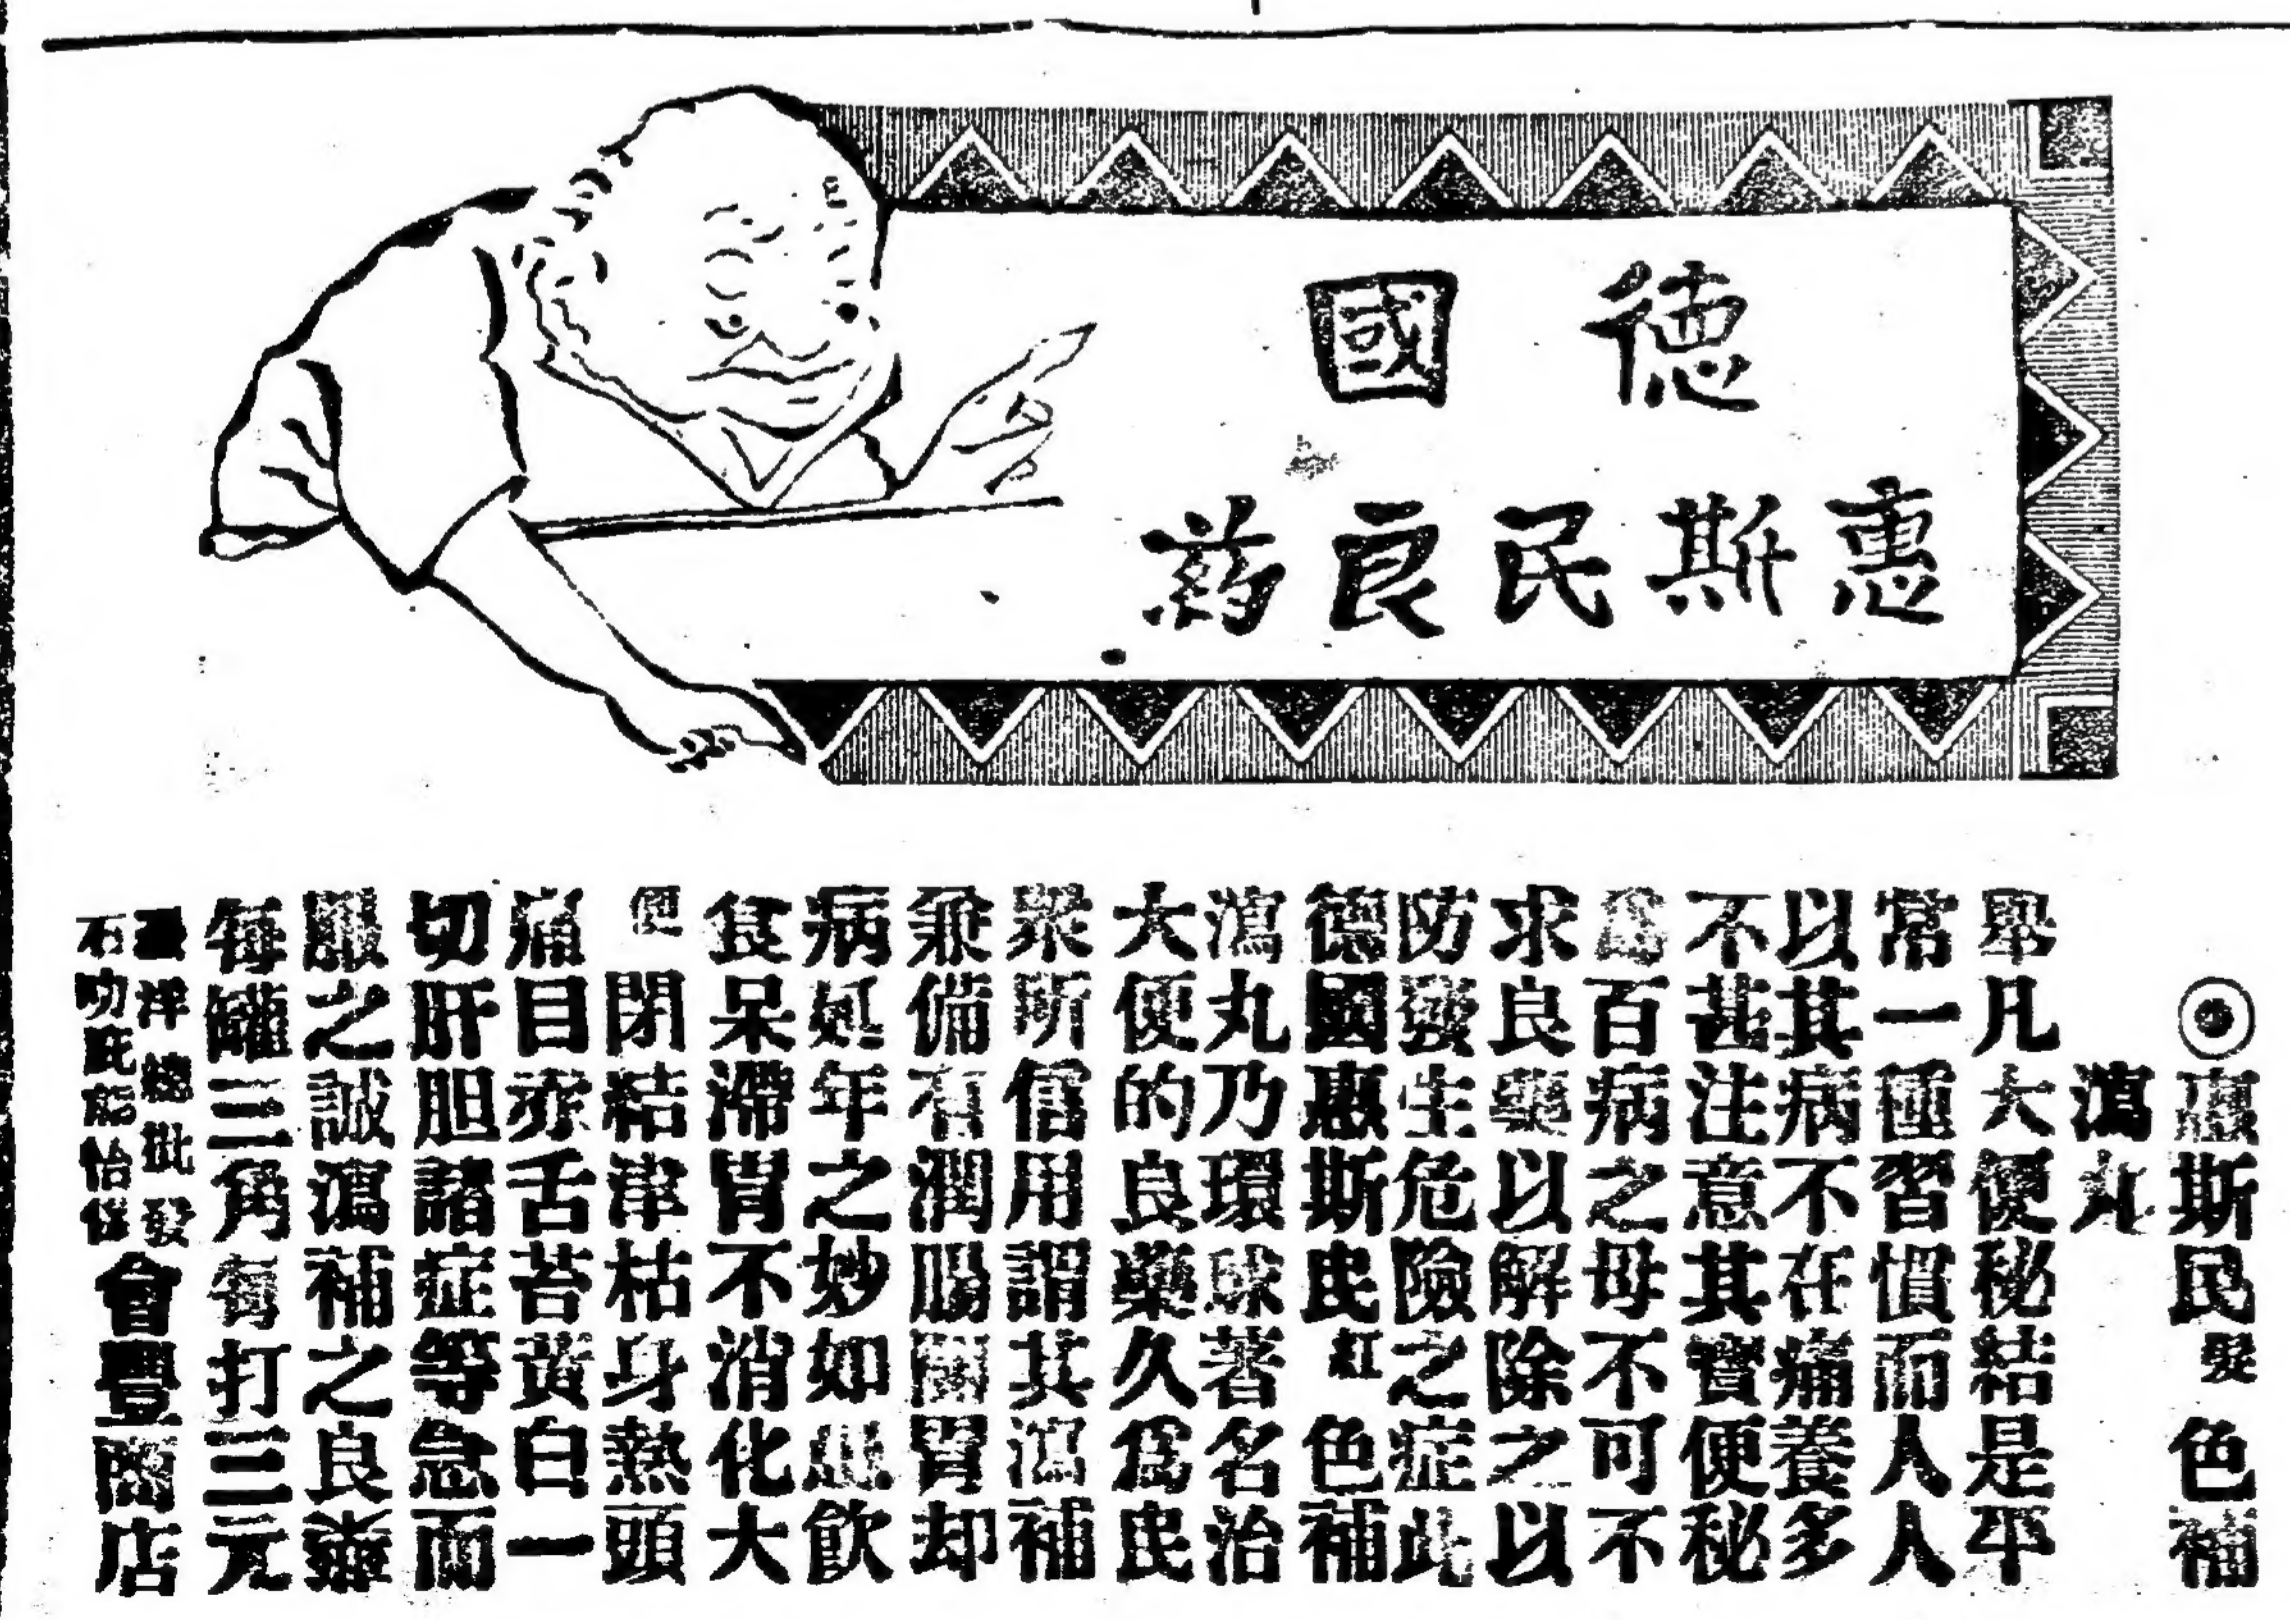 德國
惠斯民良葯
惠斯民 色補
瀉丸
舉凡大便秘結是平
常一種習慣而人人
以其病不在痛養多
不甚注意其實便秘
為百病之母不可不
求良藥以解除之以
防發生危險之症此
德國惠斯民紅色補
瀉丸乃環球著名治
大便的良藥久為民
眾所信用謂其瀉補
兼備有潤腸開胃却
病延年之妙如患飲
食呆滯胃不消化大
便閉結津枯身熱頭
痛目赤舌苔黃白一
切肝胆諸症等急而
服之誠瀉補之良藥
每罐三角每打三元
洋總批發
石叻 能怡
會豐商店